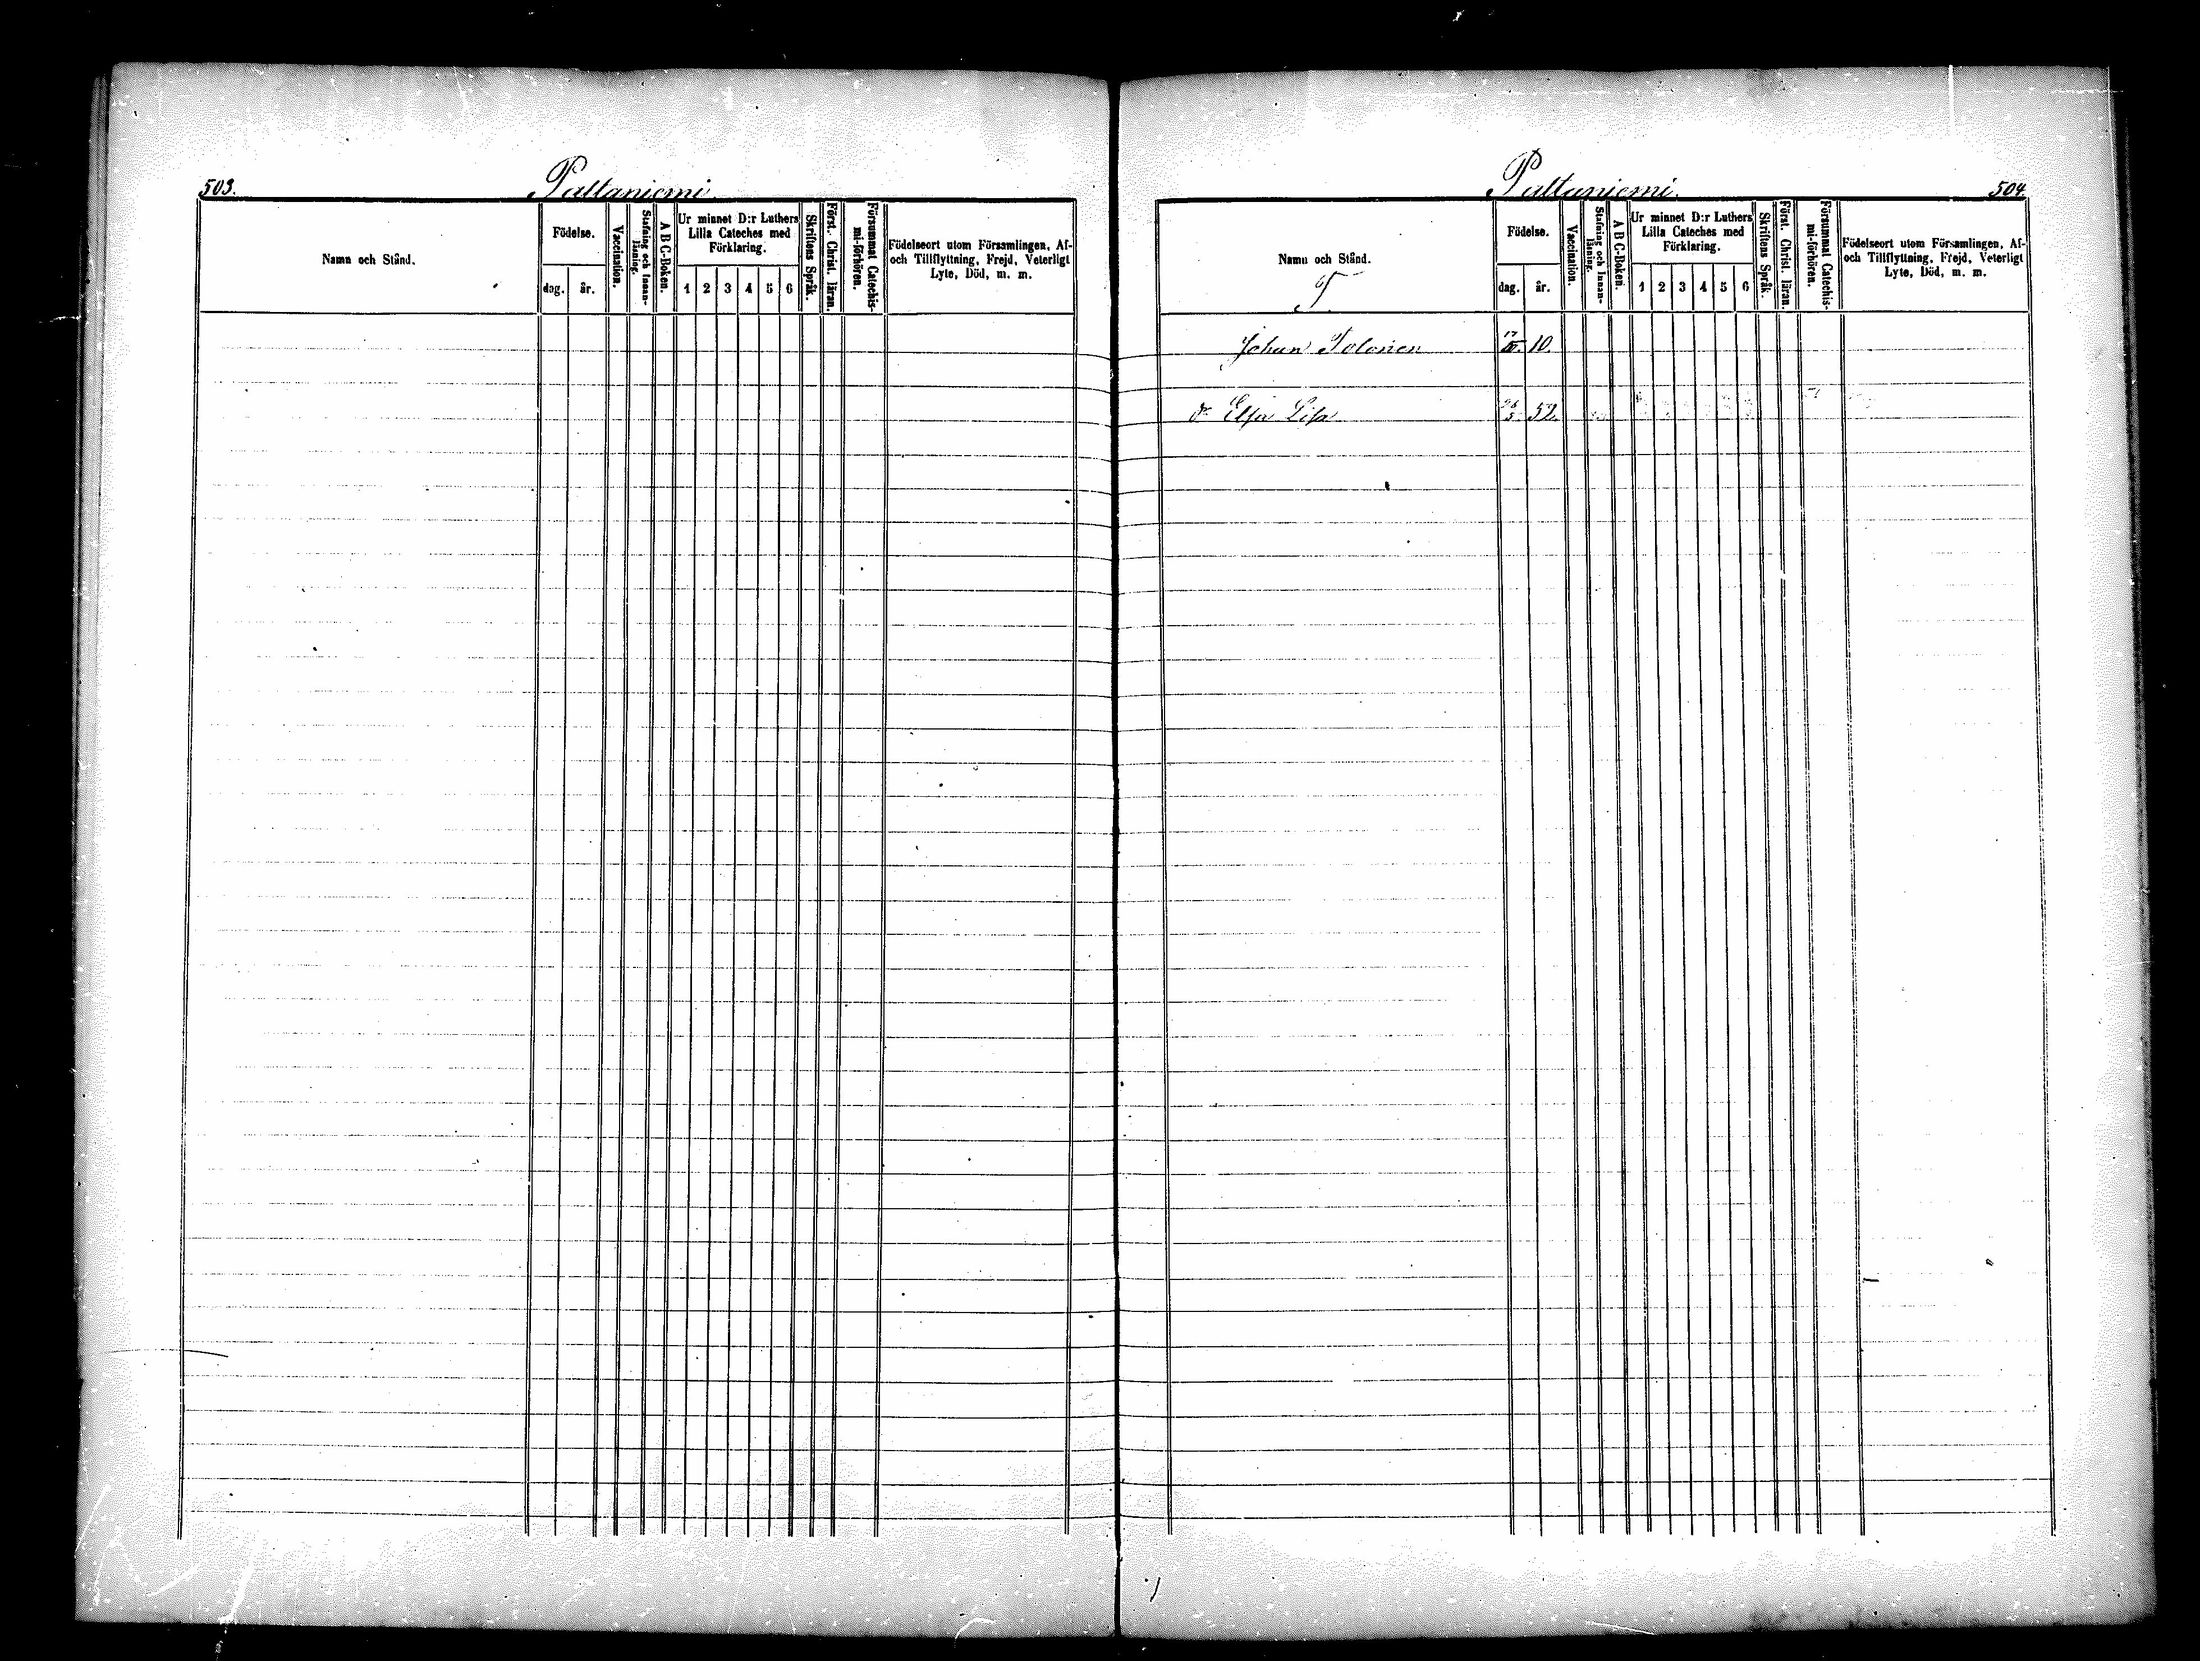 503.
Paltaniemi
Namn och Stånd.
Födelse.
dag.
år.
Vaccination.
Stafning och Innan-
läsning.
A B C-Boken.
Ur minnet D:r Luthers
Lilla Cateches med
Förklaring.
1 2 3 4 5 6
Skriftens Språk.
Först. Christ. läran.
Försummat Catechis-
mi-förhören.
Födelseort utom Församlingen, Af-
och Tillflyttning, Frejd, Veterligt
Lyte, Död, m. m.
Paltaniemi.
504.
Namn och Stånd.
T.
Födelse.
dag.
år.
Vaccination.
Stafning och Innan-
läsning.
A B C-Boken.
Ur minnet D:r Luthers
Lilla Cateches med
Förklaring.
1 2 3 4 5 6
Skriftens Språk.
Först. Christ. läran.
Försummat Catechis-
mi-förhören.
Födelseort utom Församlingen, Af-
och Tillflyttning, Frejd, Veterligt
Lyte, Död, m. m.
Johan Tolonen 10.
dr Elsa Lisa 52.